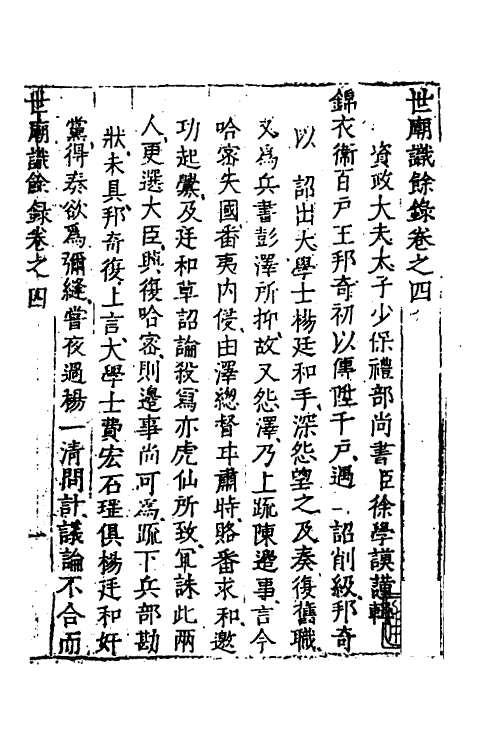 世廟識餘錄卷之四
資政大夫太子少保禮部尚書臣徐學謨謹輯
錦衣衞百戶王邦奇初以傳陞千戶遇 詔削級邦奇
以 詔出大學士楊廷和手深怨望之及奏復舊職
又爲兵書彭澤所抑故又怨澤乃上疏陳邊事言今
哈密失國番夷內侵由澤總督甘肅時賂番求和邀
功起釁及廷和草詔論殺寫亦虎仙所致宜誅此兩
人更選大臣興復哈密則邊事尚可爲疏下兵部勘
狀未具邦奇復上言大學士費宏石珤俱楊廷和奸
黨得奏欲爲彌縫嘗夜過楊一清問計議論不合而
世廟識餘錄卷之四
一